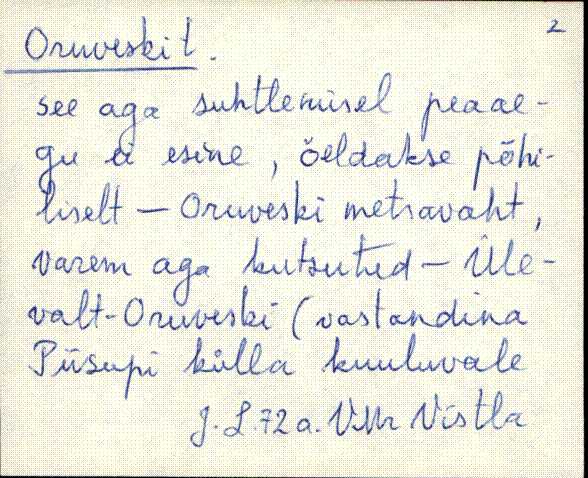 2
Oruveski t.
see aga suhtlemisel peaae-
gu ei esine, öeldakse põhi-
liselt – Oruveski metsavaht,
varem aga kutsutud – Üle-
valt-Oruveski (vastandina
Piisupi külla kuuluvale
J. L. 72 a. VMr Vistla